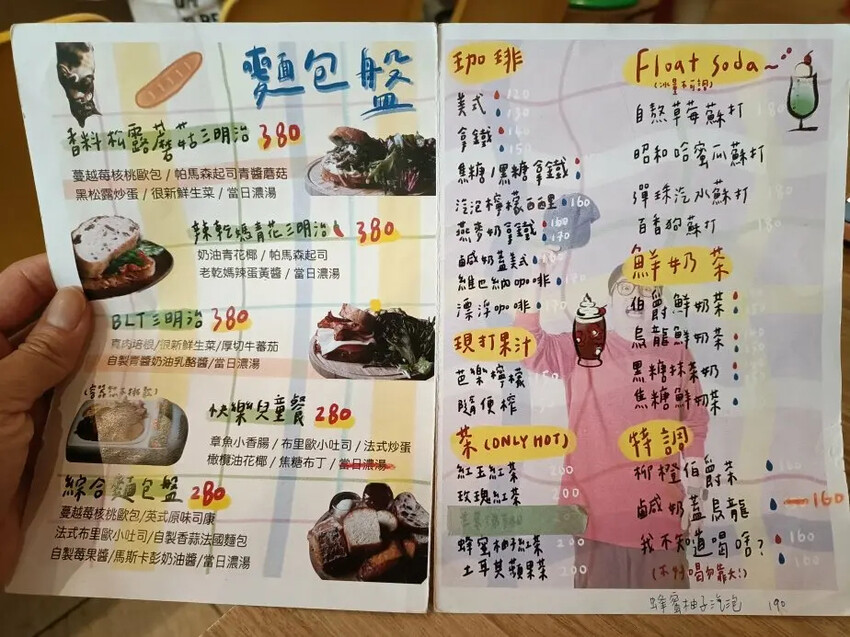 麵包盤
香料松露蘑菇三明治 380
蔓越莓核桃歐包 / 帕馬森起司青醬蘑菇
黑松露炒蛋 / 很新鮮生菜 / 當日濃湯
辣乾媽青花三明治 380
奶油青花椰 / 帕馬森起司
老乾媽辣蛋黃醬 / 當日濃湯
BLT三明治 380
育肉培根/很新鮮生菜/厚切牛蕃茄
自製青醬奶油乳酪醬/當日濃湯
快樂兒童餐 280
章魚小香腸 / 布里歐小吐司 / 法式炒蛋
橄欖油花椰 / 焦糖布丁 / 當日濃湯
綜合麵包盤 280
蔓越莓核桃歐包/英式原味司康
法式布里歐小吐司/自製香蒜法國麵包
自製莓果醬/馬斯卡彭奶油醬/當日濃湯
珈琲
美式 120
130
拿鐵 140
150
焦糖/黑糖拿鐵
汽泡檸檬西西里 160
燕麥奶拿鐵 160
170
鹹奶蓋美式
維也納咖啡 170
漂浮咖啡 170
現打果汁
芭樂檸檬 150
隨便榨
茶(ONLY HOT)
紅玉紅茶 200
玫瑰紅茶 200
蜂蜜柚子紅茶 200
土耳其蘋果茶 200
Float soda~
(冰量不可調)
自熬草莓蘇打 180
昭和哈蜜瓜蘇打
彈珠汽水蘇打 180
百香狗蘇打 180
鮮奶茶
伯爵鮮奶茶
烏龍鮮奶茶
黑糖抹茶奶
焦糖鮮奶茶
特調
柳橙伯爵茶
鹹奶蓋烏龍 160
我不知道喝啥? 160
160
(不好喝勿靠夭!)
蜂蜜柚子汽泡 190